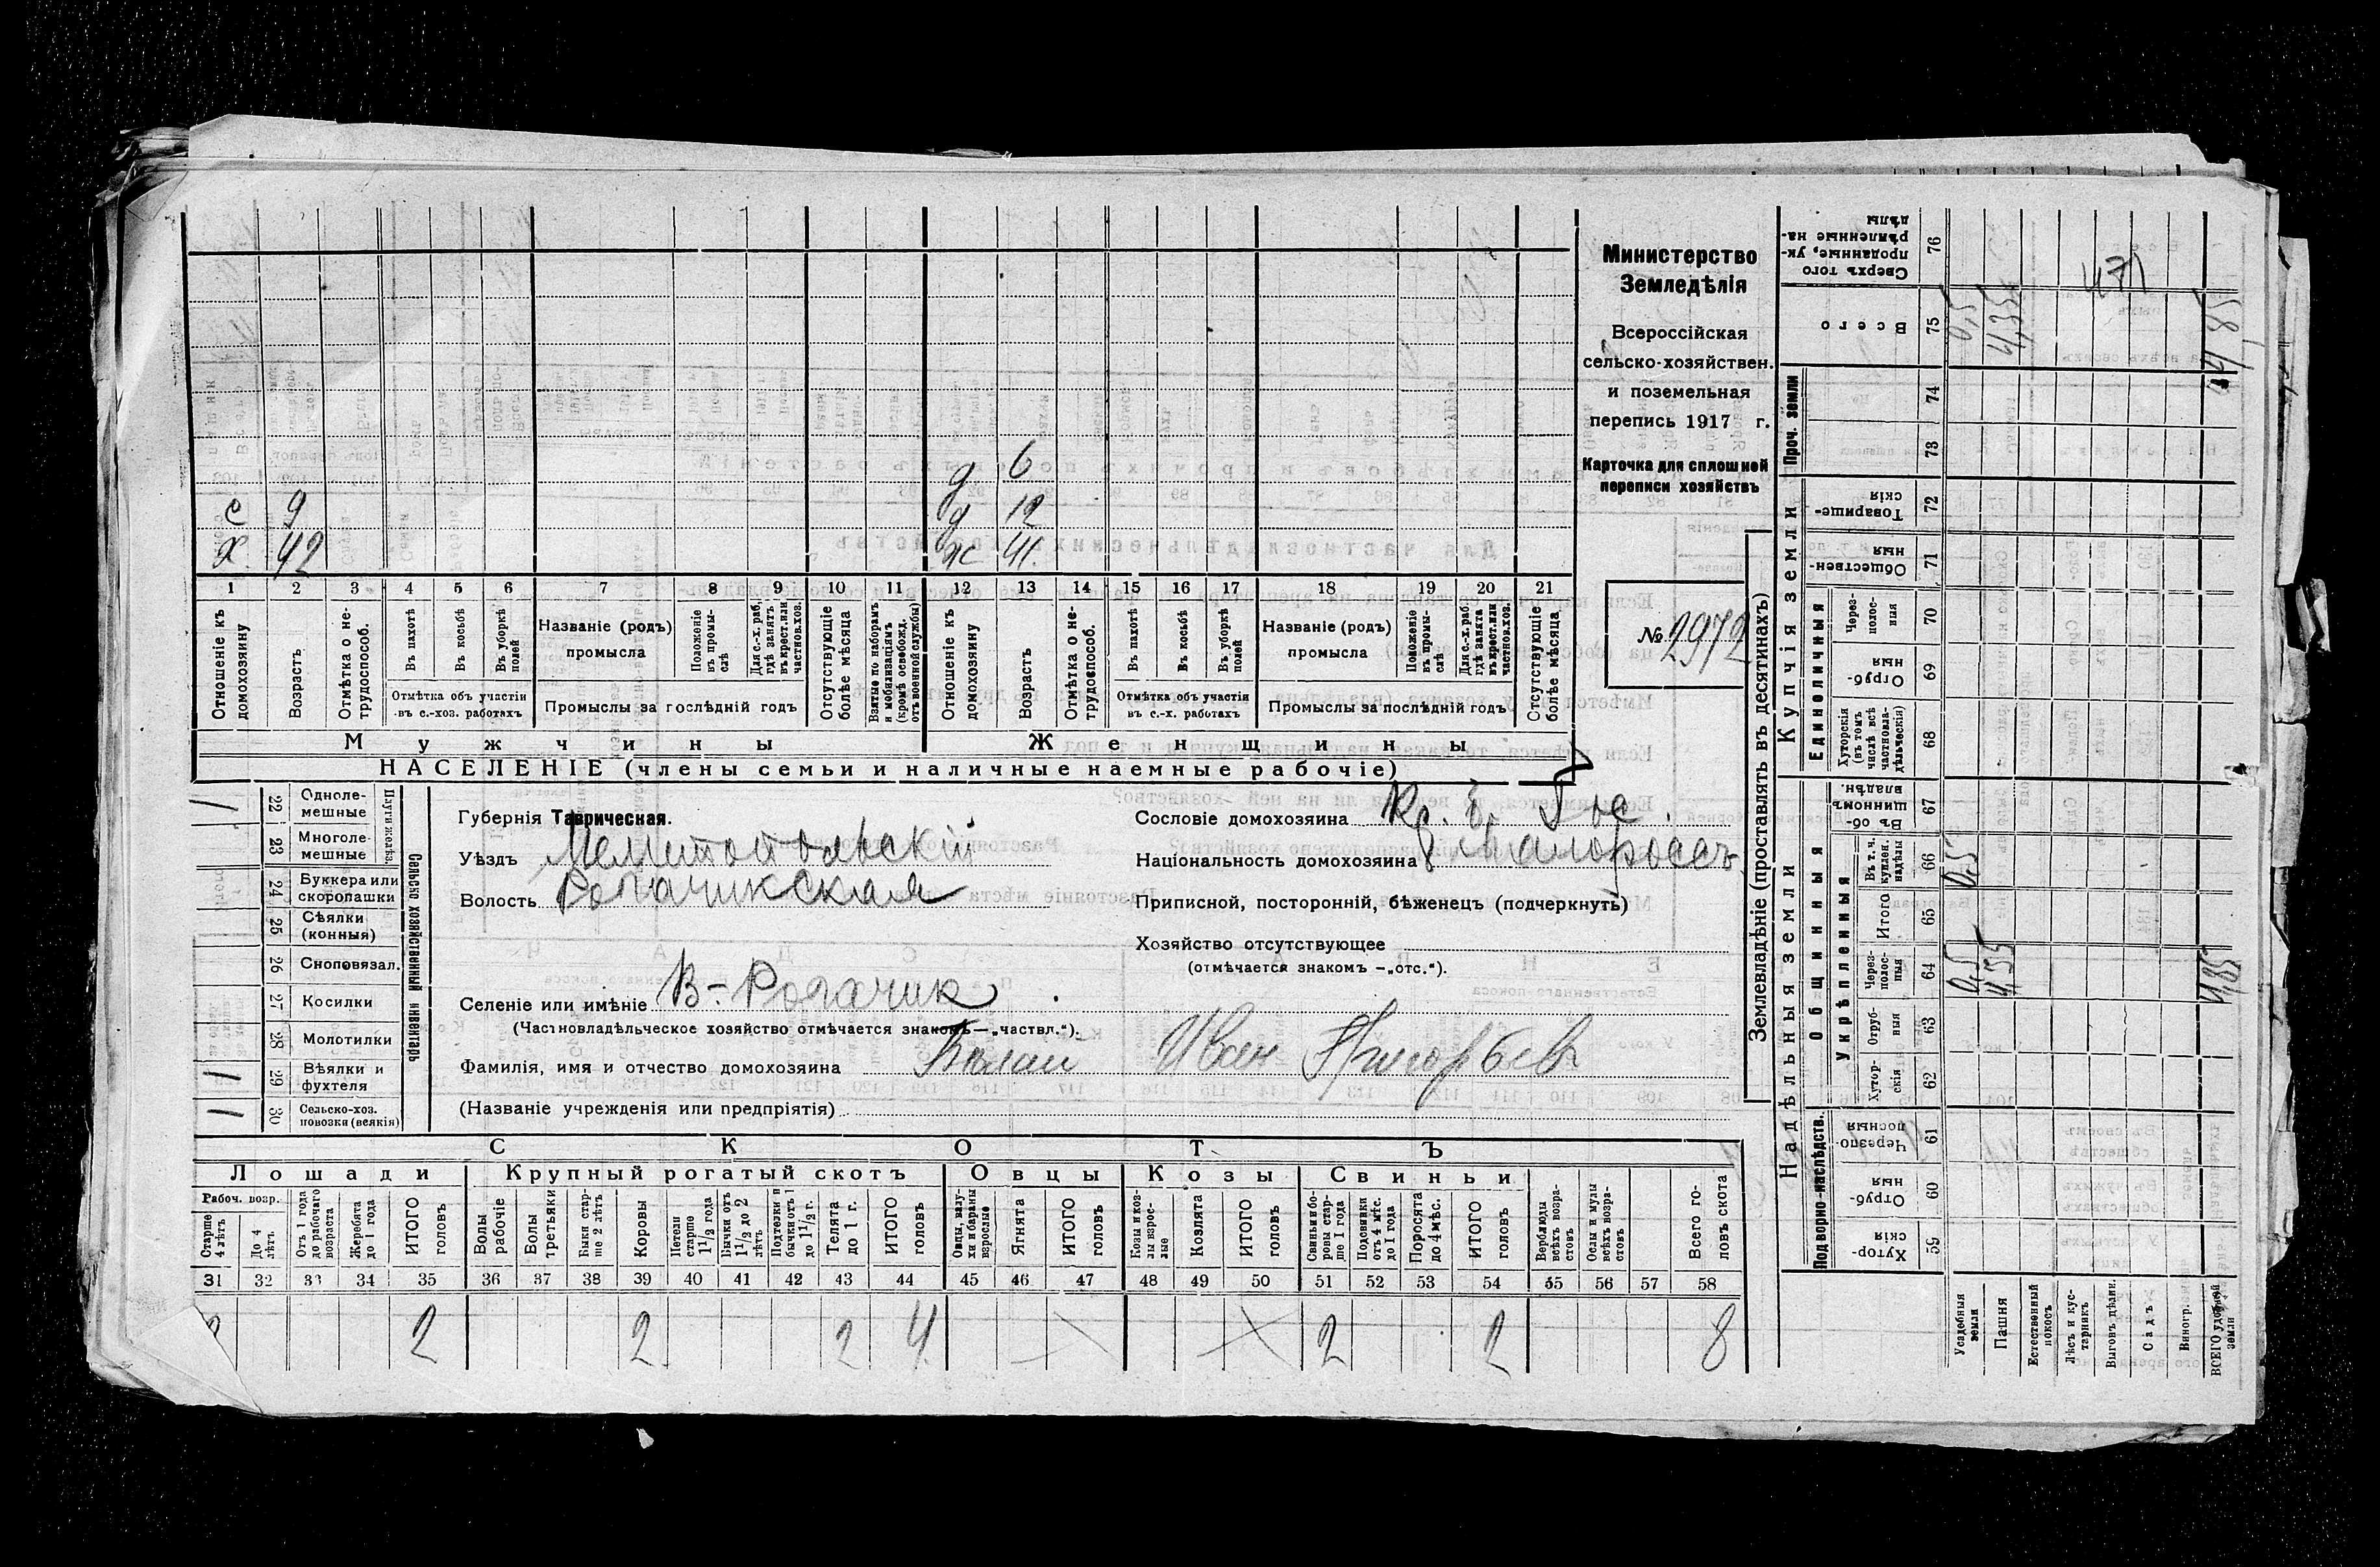 е 9
х. 42
д 6
д 12
ж 41.
1 2 3 4 5 6 7 8 9 10 11 12 13 14 15 16 17 18 19 20 21
Отношеніе къ домохозяину
Возрастъ
Отмѣтка о не-трудоспособ.
Въ пахотѣ
Въ косьбѣ
Въ уборкѣ полей
Отмѣтка объ участіи
въ с.-хоз. работахъ
Названіе (родъ)
промысла
Положеніе въ промы-слѣ
Для с.-х. раб. гдѣ занятъ въ крест. или частнов. хоз.
Промыслы за послѣдній годъ
Отсутствующіе болѣе мѣсяца
Взятые по наборамъ и мобилизаціямъ (кромѣ освобожд. отъ военной службы)
Отношеніе къ домохозяину
Возрастъ
Отмѣтка о не-трудоспособ.
Въ пахотѣ
Въ косьбѣ
Въ уборкѣ полей
Отмѣтка объ участіи
въ с.-х. работахъ
Названіе (родъ)
промысла
Положеніе въ промы-слѣ
Для с.-х. раб. гдѣ занята въ крест. или частнов. хоз.
Промыслы за послѣдній годъ
Отсутствующіе болѣе мѣсяца
Мужчины
Женщины
НАСЕЛЕНІЕ (члены семьи и наличные наемные рабочіе)
Министерство
Земледѣлія
Всероссійская
сельско-хозяйствен.
и поземельная
перепись 1917 г.
Карточка для сплошной
переписи хозяйствъ
№ 2972
22 Одноле-мешные
23 Многоле-мешные
Плуги желѣз.
24 Буккера или скоропашки
25 Сѣялки (конныя)
26 Сноповязал.
27 Косилки
28 Молотилки
29 Вѣялки и фухтеля
30 Сельско-хоз. повозки (всякія)
Сельско хозяйственный инвентарь
Губернія Таврическая.
Уѣздъ Мелитопольскій
Волость Рогачикская
Селеніе или имѣніе В-Рогачик
(Частновладѣльческое хозяйство отмѣчается знакомъ—„частвл.“).
Фамилія, имя и отчество домохозяина Иван Григорьевъ
(Названіе учрежденія или предпріятія)
Сословіе домохозяина Кр.
Національность домохозяина Малороссъ
Приписной, посторонній, бѣженецъ (подчеркнуть)
Хозяйство отсутствующее
(отмѣчается знакомъ —„отс.“).
СКОТЪ
Лошади
Крупный рогатый скотъ
Овцы
Козы
Свиньи
Рабоч. возр.
Старше 4 лѣтъ
До 4 лѣтъ
Отъ 1 года до рабочаго возраста
Жеребята до 1 года
ИТОГО головъ
Волы рабочіе
Волы третьяки
Быки стар-ше 2 лѣтъ
Коровы
Нетели старше 1 1/2 года
Бычки отъ 1 1/2 до 2 лѣтъ
Подтелки и бычки отъ 1 до 1 1/2 г.
Телята до 1 г.
ИТОГО головъ
Овцы, валу-хи и бараны взрослые
Ягнята
ИТОГО головъ
Козы и коз-лы взрос-лые
Козлята
ИТОГО головъ
Свиньи и бо-ровы стар-ше 1 года
Подсвинки отъ 4 мѣс. до 1 года
Поросята до 4 мѣс.
ИТОГО головъ
Верблюды всѣхъ возра-стовъ
Ослы и мулы всѣхъ возра-стовъ
Всего го-ловъ скота
31 32 33 34 35 36 37 38 39 40 41 42 43 44 45 46 47 48 49 50 51 52 53 54 55 56 57 58
2 2 2 2 4 2 2 8
Землевладѣніе (проставлять въ десятинахъ)
Надѣльныя земли
Купчія земли
Проч. земли
Подворно-наслѣдств.
Общинныя
Укрѣпленныя
Единоличныя
Хутор-скія 59
Отруб-ныя 60
Черезпо-лосныя 61
Хутор-скія 62
Отруб-ныя 63
Через-полос-ныя 64
Итого 65
Въ т. ч. куплен. надѣлы 66
Въ об-щинномъ владѣн. 67
Хуторскія (въ томъ числѣ всѣ частновла-дѣльческія) 68
Отруб-ныя 69
Через-полос-ныя 70
Обществен-ныя 71
Товарище-скія 72
73
74
Всего 75
Сверхъ того проданные, ук-рѣпленные на-дѣлы 76
Усадебныя земли
Пашня
Естественный покосъ
Лѣсъ и кус-тарникъ
Выгонъ дѣлин.
Садъ
Виногр.
ВСЕГО удобной земли
0,5
4,35
4,85
0,5
0,5
4,35
471
4,85